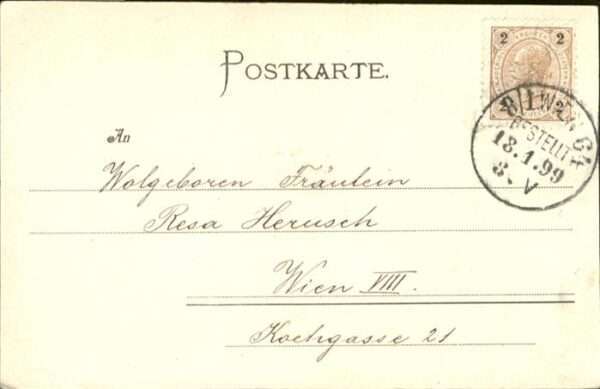 2 2
POSTKARTE.
8/1 WIEN 64
BESTELLT
An
18.1.99
8-V
Wolgeboren Fräulein
Resa Herusch
Wien VIII.
Kochgasse 21